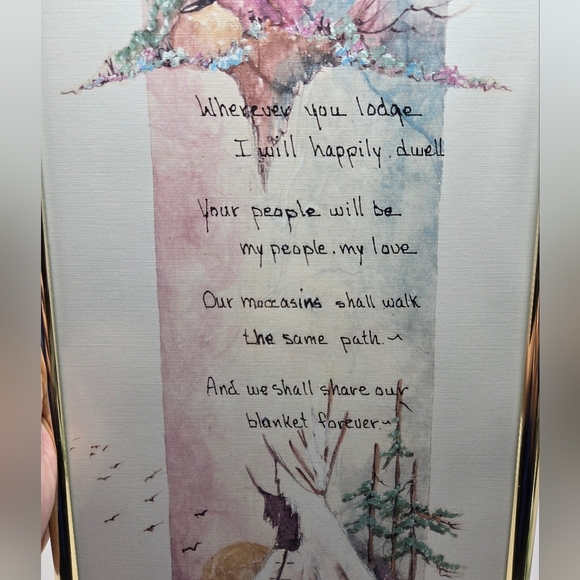 Wherever you lodge
I will happily dwell
Your people will be
my people, my love
Our moccasins shall walk
the same path.~
And we shall share our
blanket forever~